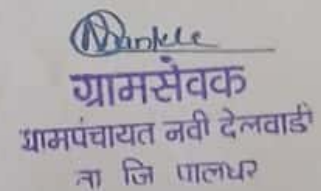 ग्रामसेवक
ग्रामपंचायत नवी देलवाडी
ता जि पालघर